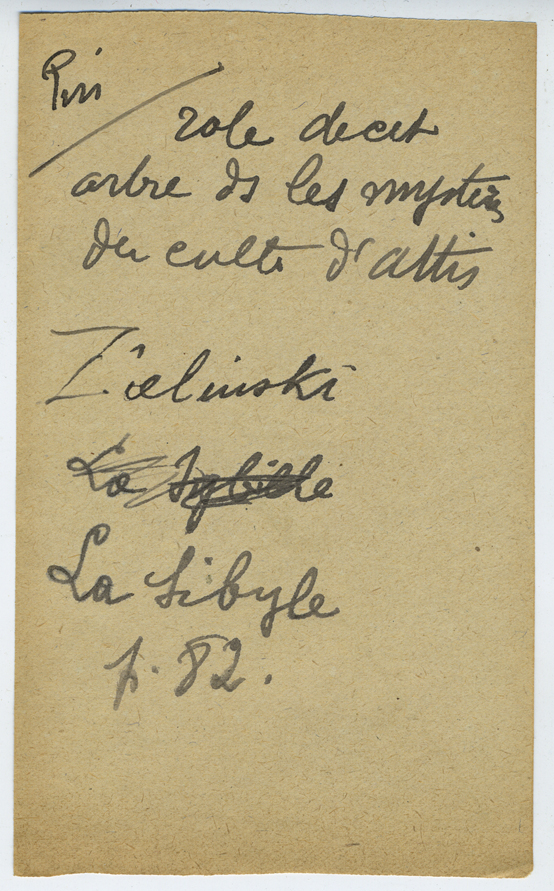 Pin
role de cet
arbre ds les mystères
du culte d'Attis
Zielinski
La Sybille
La Sibyle
p. 82.